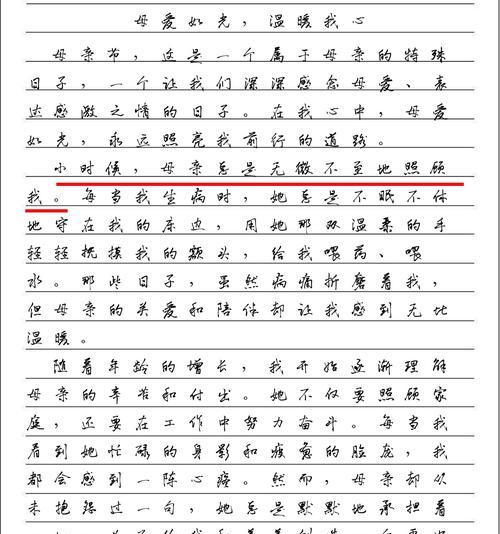 母爱如光，温暖我心
母亲节，这是一个属于母亲的特殊
日子，一个让我们深深感念母爱、表
达感激之情的日子。在我心中，母爱
如光，永远照亮我前行的道路。
小时候，母亲总是无微不至地照顾
我。每当我生病时，她总是不眠不休
地守在我的床边，用她那双温柔的手
轻轻抚摸我的额头，给我喂药、喂
水。那些日子，虽然病痛折磨着我，
但母亲的关爱和陪伴却让我感到无比
温暖。
随着年龄的增长，我开始逐渐理解
母亲的辛苦和付出。她不仅要照顾家
庭，还要在工作中努力奋斗。每当我
看到她忙碌的身影和疲惫的脸庞，我
都会感到一阵心疼。然而，母亲却从
未抱怨过一句，她总是默默地承担着